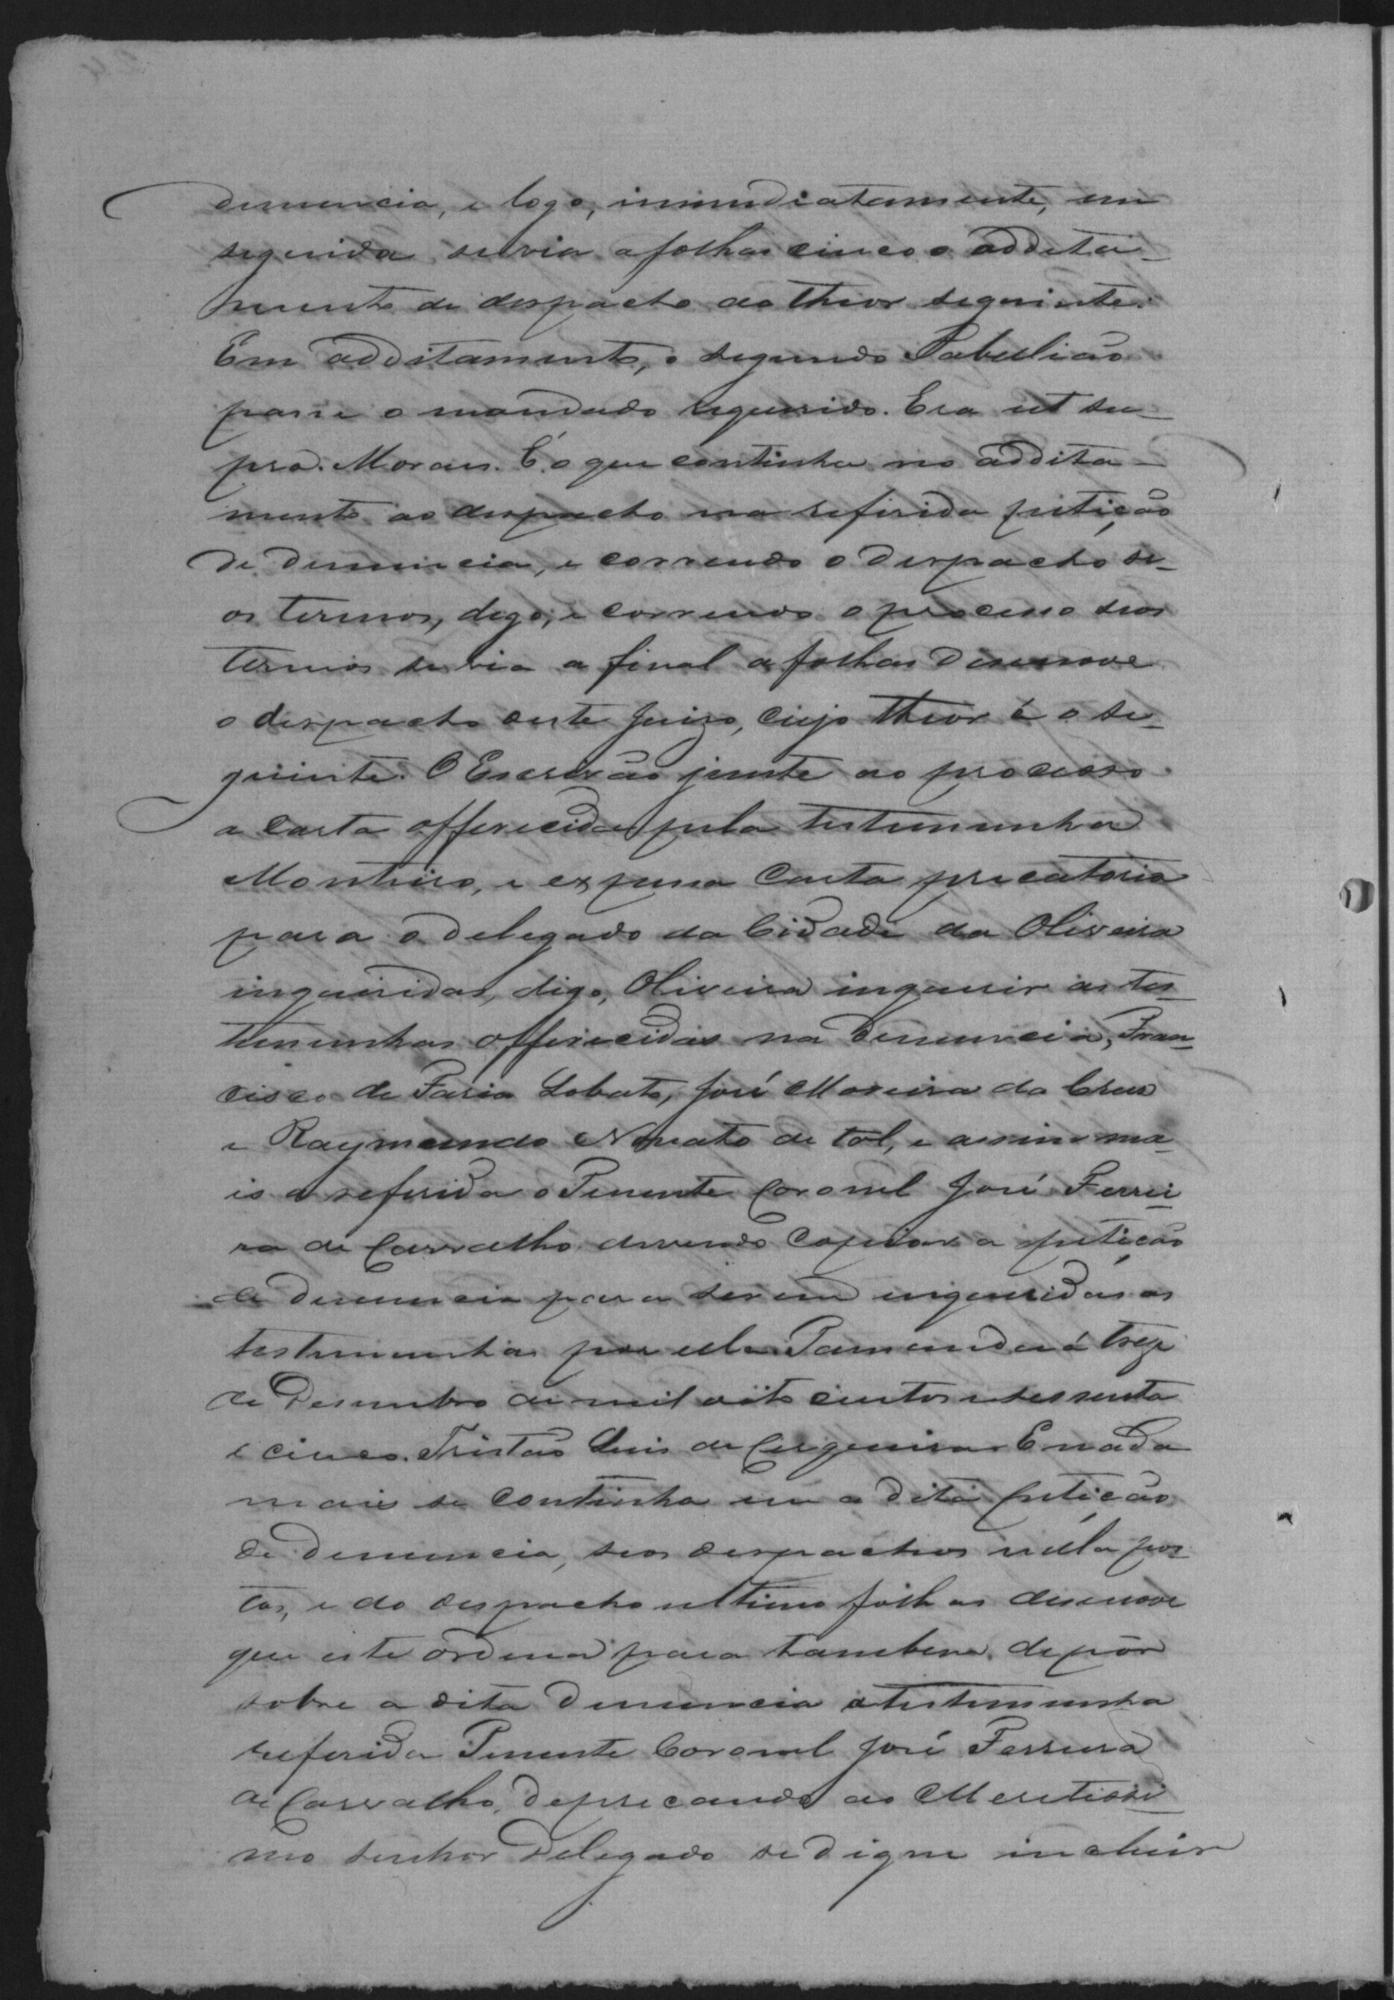 denuncia, e logo, immediatamente, em
seguida se via a folhas cinco o addita-
mento de despacho do theor seguinte:
Em additamento, o segundo Tabelião
passe o mandado requerido. Era ut su-
pra. Moraes. E o que continha no addita-
mento ao despacho na referida petição
de denuncia, e correndo o despacho se-
os termos, digo, e correndo o processo seos
termos se via a final a folhas desenove
o despacho deste Juizo, cujo theor é o se-
guinte. O Escrivão junte ao processo
a carta offerecida pela testemunha
Monteiro, e expessa Carta precatoria
para o delegado da Cidade da Oliveira
inqueridas, digo, Oliveira inquerir as tes-
temunhas offerecidas na denuncia, Fran-
cisco de Faria Lobato, José Moreira da Crus
e Raymundo Nonato de tal, e assim ma-
is a referida o Tenente Coronel José Ferrei-
ra de Carvalho devendo copiar a petição
de denuncia para serem inqueridas as
testemunhas por ella. Tamanduá treze
de Desembro de mil oito centos e sessenta
e cinco. Tristão Luis de Cerqueira. E nada
mais se continha em a dita petição
de denuncia, seos despachos nella pos-
tos, e do despacho ultimo folhas desenove
que este ordena para tambem depôr
sobre a dita denuncia a testemunha
referida Tenente Coronel José Ferreira
de Carvalho, deprecando ao Meretissi-
mo senhor Delegado se digne incluir